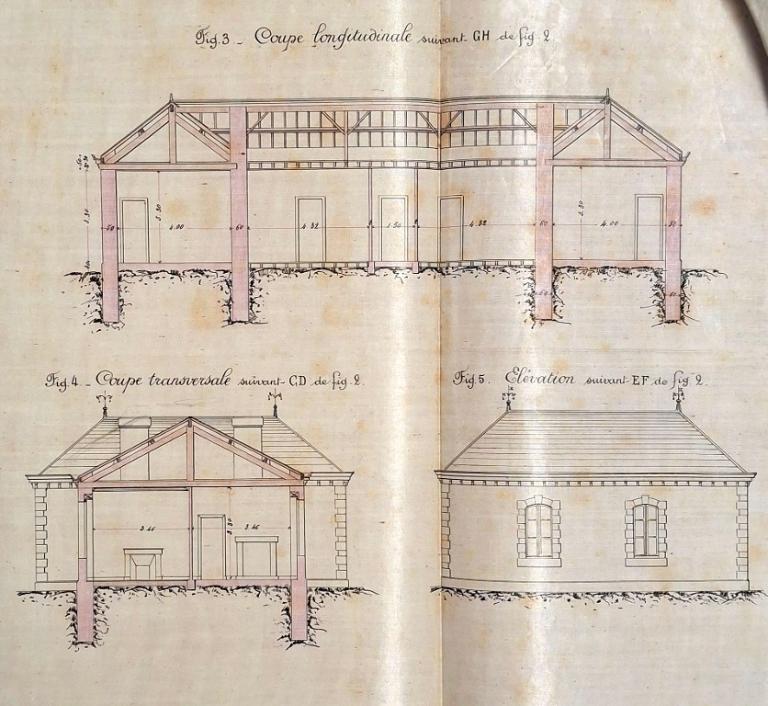 Fig. 3 _ Coupe longitudinale suivant GH de fig. 2.
3.30
3.30
50
4.00
60
4.32
1.50
4.32
60
3.30
4.00
50
Fig. 4 _ Coupe transversale suivant CD de fig. 2.
3.46
3.30
3.46
Fig. 5. Elévation suivant EF de fig. 2.